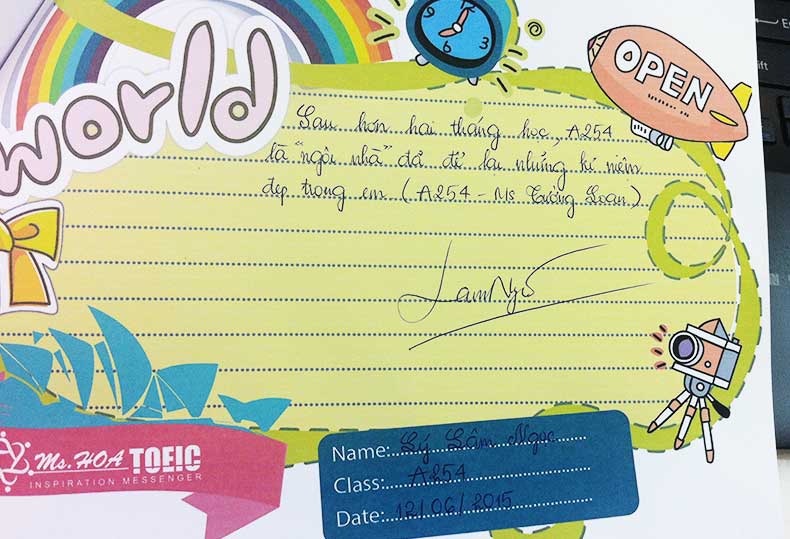 world
6
3
OPEN
Sau hơn hai tháng học, A254
là "ngôi nhà" đã để lại những kỉ niệm
đẹp trong em (A254 - Ms Tường Loan)
LamNgọ
Ms. HOA TOEIC
INSPIRATION MESSENGER
Name: Lý Lâm Ngọc
Class: A254
Date: 12/06/2015